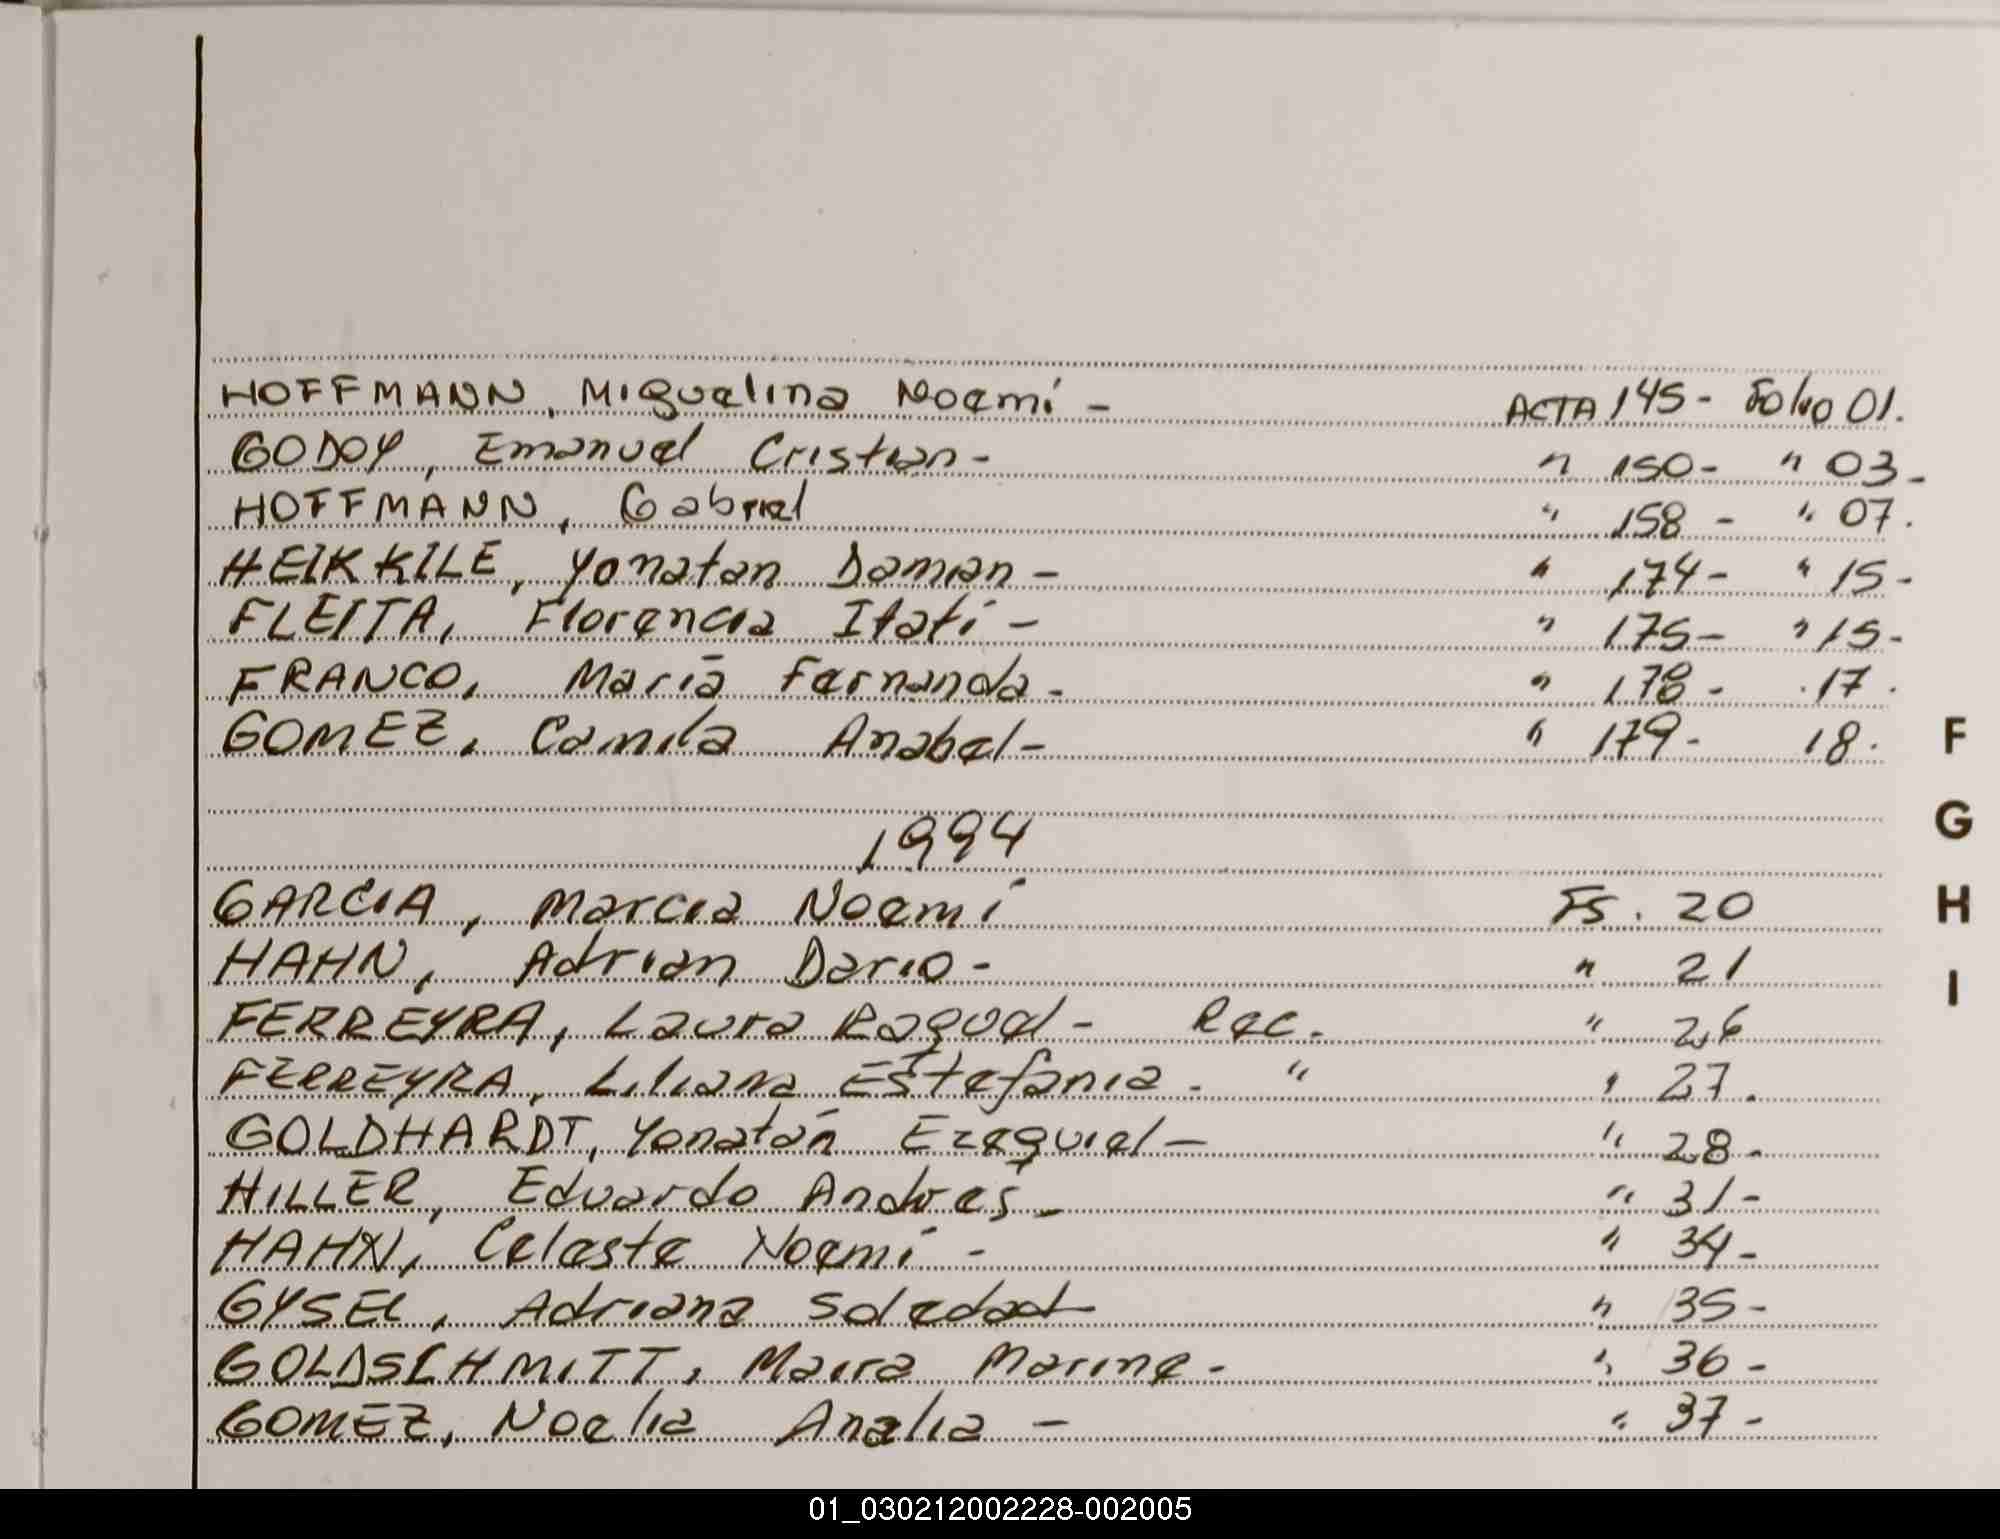 HOFFMANN, Miguelina Noemí - ACTA 145 - Folio 01.
GODOY, Emanuel Cristian - " 150 - " 03 -
HOFFMANN, Gabriel " 158 - " 07.
HEIKKILE, Yonatan Damian - " 174 - " 15 -
FLEITA, Florencia Itatí - " 175 - " 15 -
FRANCO, María Fernanda - " 178 - . 17.
GOMEZ, Camila Anabel - " 179 - 18.
F
G
1994
GARCIA, Marcia Noemí Fs. 20
H
HAHN, Adrian Dario - " 21
I
FERREYRA, Laura Raquel - Rec. " 26
FERREYRA, Liliana Estefania. " " 27.
GOLDHARDT, Yonatán Ezequiel - " 28 -
HILLER, Eduardo Andres - " 31 -
HAHN, Celeste Noemí - " 34 -
GYSEL, Adriana Soledad " 35 -
GOLDSCHMITT, Maira Marine - " 36 -
GOMEZ, Noelia Analia - " 37 -
01_030212002228-002005